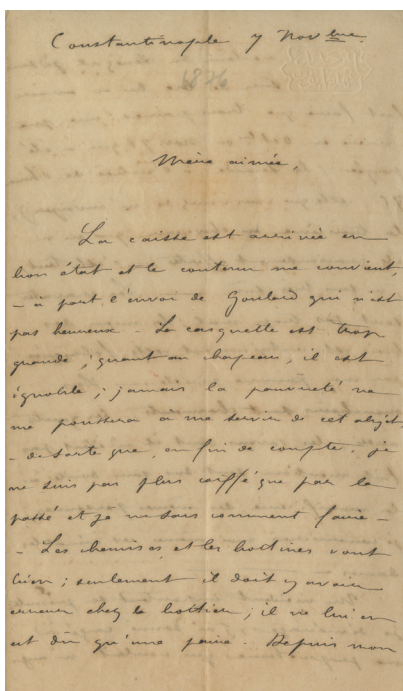 Constantinople 7 Novbre
1876
Mère aimée,
La caisse est arrivée en
bon état et le contenu me convient,
- à part l'envoi de Goulard qui n'est
pas heureux - La casquette est trop
grande ; quant au chapeau, il est
ignoble ; jamais la pauvreté ne
me poussera à me servir de cet objet
- de sorte que, en fin de compte, je
ne suis pas plus coiffé que par le
passé et je ne sais comment faire -
- Les chemises et les bottines vont
bien ; seulement il doit y avoir
erreur chez le bottier ; il ne lui en
est dû qu'une paire. Depuis mon